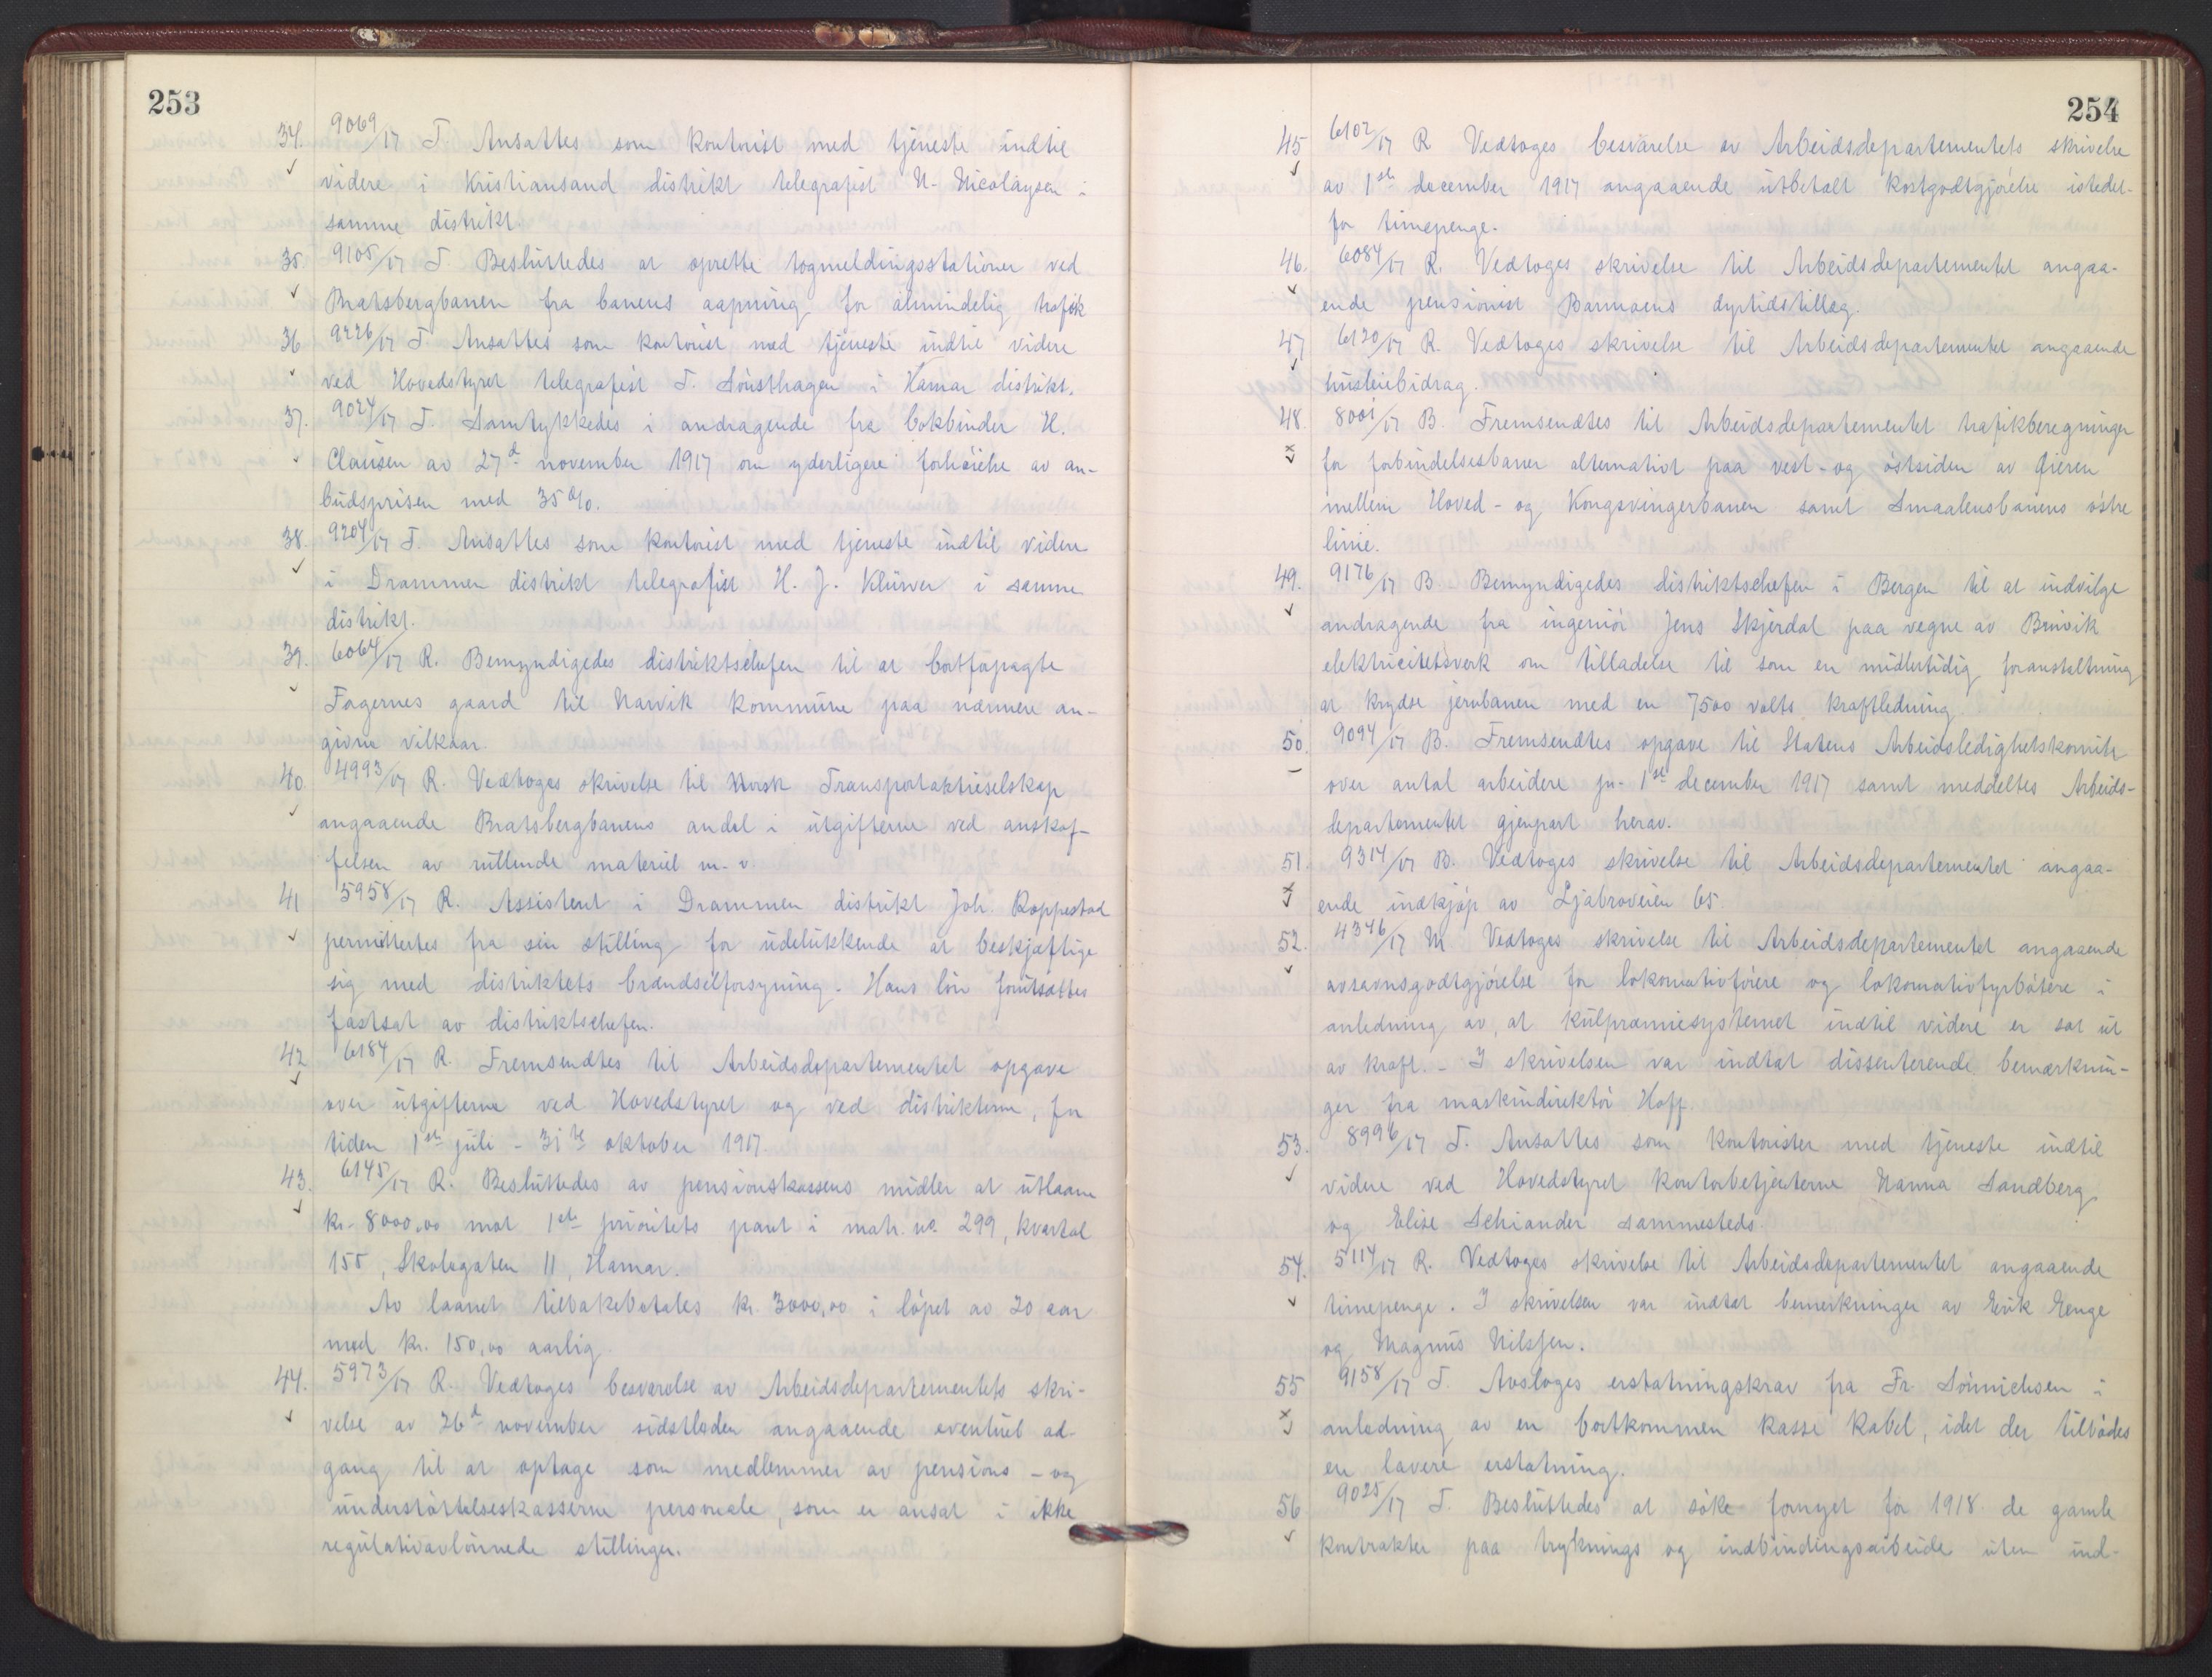 253
34. 9069/17 T. Ansattes som kontorist med tjeneste indtil
videre i Kristiansand distrikt telegrafist N. Nicolaysen i
samme distrikt.
35. 9105/17 T. Besluttedes at oprette togmeldingsstationer ved
Bratsbergbanen fra banens aapning for almindelig trafik
36 9226/17 T. Ansattes som kontorist med tjeneste indtil videre
ved Hovedstyret telegrafist T. Lönsthagen i Hamar distrikt.
37. 9024/17 T. Samtykkedes i andragende fra bokbinder H.
Clausen av 27de november 1917 om yderligere forhöielse av an-
budsprisen med 35%.
38. 9204/17 T. Ansattes som kontorist med tjeneste indtil videre
i Drammen distrikt telegrafist H. J. Klüwer i samme
distrikt.
39. 6064/17 R. Bemyndigedes distriktschefen til at bortforpagte
Fagernes gaard til Narvik kommune paa nærmere an-
givne vilkaar.
40 4993/17 R. Vedtoges skrivelse til Norsk Transportaktieselskap
angaaende Bratsbergbanens andel i utgifterne ved anskaf-
felsen av rullende materiel m. v.
41 5958/17 R. Assistent i Drammen distrikt Joh. Roppestad
permittertes fra sin stilling for udelukkende at beskjæftige
sig med distriktets brændselforsyning. Hans lön forutsattes
fastsat av distriktschefen.
42 6184/17 R. Fremsendtes til Arbeidsdepartementet opgave
over utgifterne ved Hovedstyret og ved distrikterne, for
tiden 1ste juli - 31te oktober 1917.
43. 6145/17 R. Besluttedes av pensionskassens midler at utlaane
kr. 8000,00 mot 1ste prioritets pant i matr. no. 299, kvartal
155, Skolegaten 11, Hamar.
Av laanet tilbakebetales kr. 3000,00 i löpet av 20 aar
med kr. 150,00 aarlig.
44. 5973/17 R. Vedtoges besvarelse av Arbeidsdepartementets skri-
velse av 26de november sidstleden angaaende eventuel ad-
gang til at optage som medlemmer av pensions - og
understöttelseskasserne personale, som er ansat i ikke
regulativavlönnede stillinger.
254
45 6102/17 R Vedtoges besvarelse av Arbeidsdepartementets skrivelse
av 1ste december 1917 angaaende utbetalt kostgodtgjörelse istedet-
for timepenge.
46. 6084/17 R. Vedtoges skrivelse til Arbeidsdepartementet angaa-
ende pensionist Barmoens dyrtidstillæg.
47 6120/17 R. Vedtoges skrivelse til Arbeidsdepartementet angaaende
husleiebidrag.
48. 8001/17 B. Fremsendtes til Arbeidsdepartementet trafikberegninger
for forbindelsesbaner alternativt paa vest- og östsiden av Öieren
mellem Hoved- og Kongsvingerbanen samt Smaalensbanens östre
linie.
49. 9176/17 B. Bemyndigedes distriktschefen i Bergen til at indvilge
andragende fra ingeniör Jens Skjerdal paa vegne av Bruvik
elektricitetsverk om tilladelse til som en midlertidig foranstaltning
at krydse jernbanen med en 7500 volts kraftledning.
50. 9094/17 B. Fremsendtes opgave til Statens Arbeidsledighetskomite
over antal arbeidere pr. 1ste december 1917 samt meddeltes Arbeids-
departementet gjenpart herav.
51. 9314/17 B. Vedtoges skrivelse til Arbeidsdepartementet angaa-
ende indkjöp av Ljabroveien 65.
52. 4346/17 M Vedtoges skrivelse til Arbeidsdepartementet angaaende
avsavnsgodtgjörelse for lokomotivförere og lokomotivfyrbötere i
anledning av, at kulpræmiesystemet indtil videre er sat ut
av kraft. - I skrivelsen var indtat dissenterende bemærknin-
ger fra maskindirektör Hoff.
53. 8996/17 T. Ansattes som kontorister med tjeneste indtil
videre ved Hovedstyret kontorbetjenterne Nanna Sandberg
og Elise Schiander sammesteds.
54. 5114/17 R. Vedtoges skrivelse til Arbeidsdepartementet angaaende
timepenge. I skrivelsen var indtat bemerkninger av Erik Enge
og Magnus Nilssen.
55 9158/17 T. Avsloges erstatningskrav fra Fr. Sönnichsen i
anledning av en bortkommen kasse kabel, idet der tilbödes
en lavere erstatning.
56 9025/17 T. Besluttedes at söke fornyet for 1918 de gamle
kontrakter paa tryknings og indbindingsarbeide uten ind-